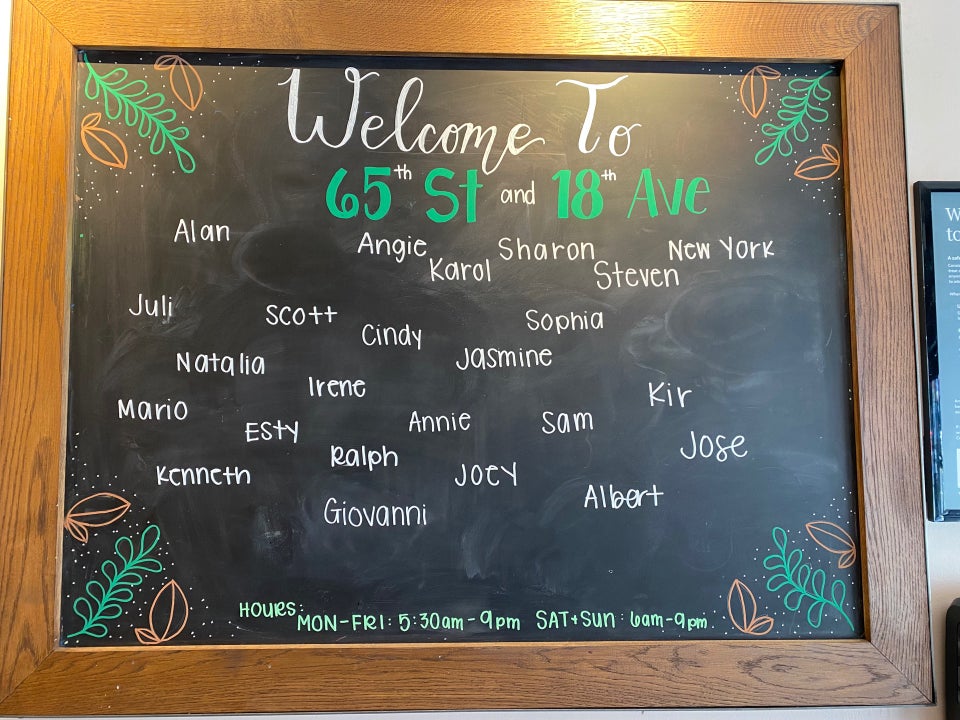 Welcome To
65th St and 18th Ave
Alan Angie Sharon New York
Karol Steven
Juli Scott Sophia
Cindy
Natalia Jasmine
Irene Kir
Mario Annie Sam
Esty Jose
Ralph
Kenneth Joey
Albert
Giovanni
HOURS: MON-FRI: 5:30am-9pm SAT+SUN: 6am-9pm.